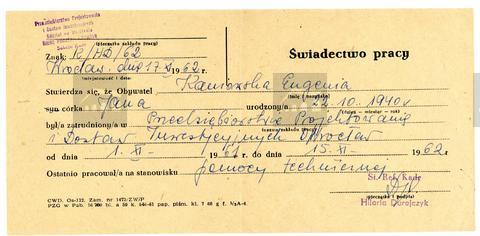 Przedsiębiorstwo Projektowania
i Dostaw Inwestycyjnych
(pieczątka zakładu pracy)
Znak: K/HD/62
Wrocław, dnia 17.X 1962 r.
(miejscowość i data)
Świadectwo pracy
Stwierdza się, że Obywatel Kaniowska Eugenia
(imię i nazwisko)
syn córka Jana urodzony/a 22.10.1940 r.
(dzień — miesiąc — rok)
był/a zatrudniony/a w Przedsiębiorstwie Projektowania
(nazwa zakładu pracy)
i Dostaw Inwestycyjnych Wrocław
od dnia 1. XI 1961 r. do dnia 15. XI. 1962
Ostatnio pracował/a na stanowisku pomocy technicznej
St. Ref. Kadr
(pieczątka i podpis)
Hilaria Durajczyk
CWD. Os-132. Zam. nr 1473/ZW/P